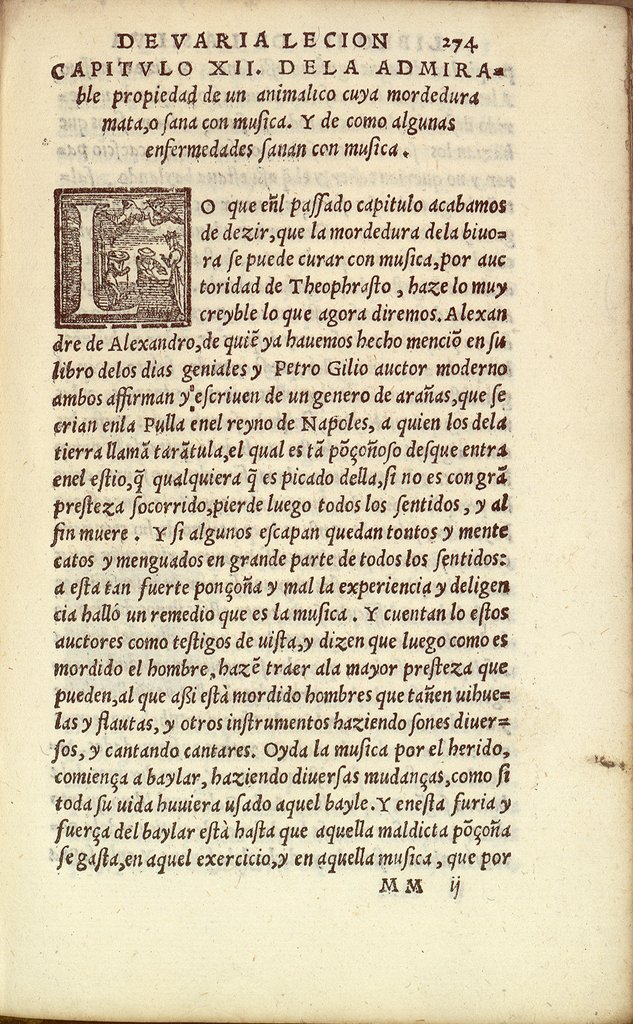 DE VARIA LECION 274
CAPITVLO XII. DE LA ADMIRA-
ble propiedad de un animalico cuya mordedura
mata, o ſana con muſica. Y de como algunas
enfermedades ſanan con muſica.
LO que eñl paſſado capitulo acabamos
de dezir, que la mordedura dela biuo=
ra ſe puede curar con muſica, por auc
toridad de Theophraſto, haze lo muy
creyble lo que agora diremos. Alexan
dre de Alexandro, de quiẽ ya hauemos hecho menciõ en ſu
libro delos dias geniales y Petro Gilio auctor moderno
ambos affirman y eſcriuen de un genero de arañas, que ſe
crian enla Pulla enel reyno de Napoles, a quien los dela
tierra llamã tarãtula, el qual es tã põçoñoſo deſque entra
enel eſtio, q̃ qualquiera q̃ es picado della, ſi no es con grã
preſteza ſocorrido, pierde luego todos los ſentidos, y al
fin muere. Y ſi algunos eſcapan quedan tontos y mente
catos y menguados en grande parte de todos los ſentidos:
a eſta tan fuerte ponçoña y mal la experiencia y deligen
cia hallò un remedio que es la muſica. Y cuentan lo eſtos
auctores como teſtigos de uiſta, y dizen que luego como es
mordido el hombre, hazẽ traer ala mayor preſteza que
pueden, al que aßi eſtà mordido hombres que tañen uihue=
las y flautas, y otros inſtrumentos haziendo ſones diuer=
ſos, y cantando cantares. Oyda la muſica por el herido,
comiença a baylar, haziendo diuerſas mudanças, como ſi
toda ſu uida huuiera uſado aquel bayle. Y eneſta furia y
fuerça del baylar eſtà haſta que aquella maldicta põçoña
ſe gaſta, en aquel exercicio, y en aquella muſica, que por
MM ij